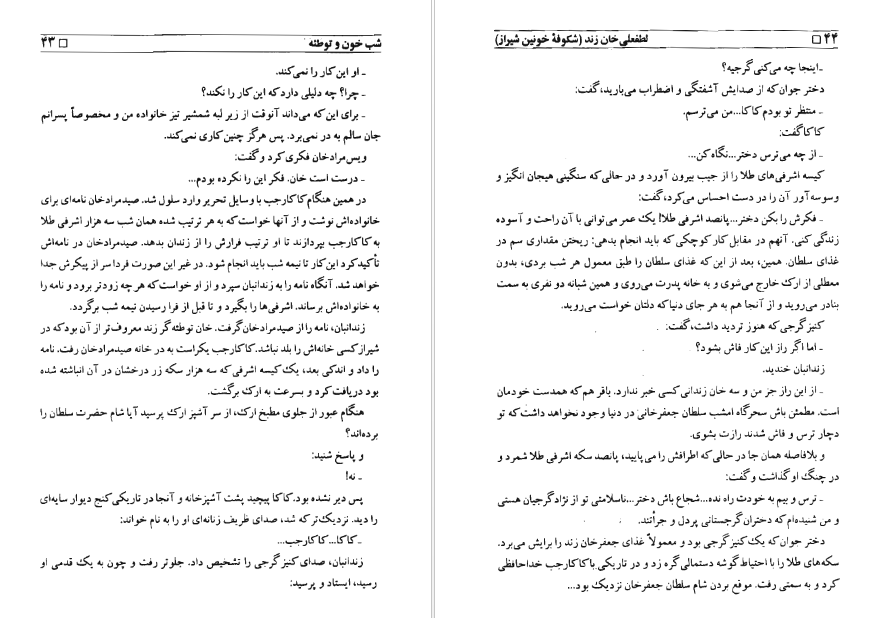 شب خون و توطئه □ ۴۳
ـ او این کار را نمی‌کند.
ـ چرا؟ چه دلیلی دارد که این کار را نکند؟
ـ برای این که می‌داند آنوقت از زیر لبه شمشیر تیز خانواده من و مخصوصاً پسرانم
جان سالم به در نمی‌برد. پس هرگز چنین کاری نمی‌کند.
ویس‌مرادخان فکری کرد و گفت:
ـ درست است خان. فکر این را نکرده بودم...
در همین هنگام کاکارجب با وسایل تحریر وارد سلول شد. صیدمرادخان نامه‌ای برای
خانواده‌اش نوشت و از آنها خواست که به هر ترتیب شده همان شب سه هزار اشرفی طلا
به کاکارجب بپردازند تا او ترتیب فرارش را از زندان بدهد. صیدمرادخان در نامه‌اش
تأکید کرد این کار تا نیمه شب باید انجام شود. در غیر این صورت فردا سر از پیکرش جدا
خواهد شد. آنگاه نامه را به زندانبان سپرد و از او خواست که هر چه زودتر برود و نامه را
به خانواده‌اش برساند. اشرفی‌ها را بگیرد و تا قبل از فرا رسیدن نیمه شب برگردد.
زندانبان، نامه را از صیدمرادخان گرفت. خان توطئه‌گر زند معروف‌تر از آن بود که در
شیراز کسی خانه‌اش را بلد نباشد. کاکارجب یکراست به در خانه صیدمرادخان رفت. نامه
را داد و اندکی بعد، یک کیسه اشرفی که سه هزار سکه زر درخشان در آن انباشته شده
بود دریافت کرد و بسرعت به ارک برگشت.
هنگام عبور از جلوی مطبخ ارک، از سر آشپز ارک پرسید آیا شام حضرت سلطان را
برده‌اند؟
و پاسخ شنید:
ـ نه!
پس دیر نشده بود. کاکا پیچید پشت آشپزخانه و آنجا در تاریکی کنج دیوار سایه‌ای
را دید. نزدیک‌تر که شد، صدای ظریف زنانه‌ای او را به نام خواند:
ـ کاکا... کاکارجب...
زندانبان، صدای کنیز گرجی را تشخیص داد. جلوتر رفت و چون به یک قدمی او
رسید، ایستاد و پرسید:
۴۴ □ لطفعلی‌خان زند (شکوفهٔ خونین شیراز)
ـ اینجا چه می‌کنی گرجیه؟
دختر جوان که از صدایش آشفتگی و اضطراب می‌بارید، گفت:
ـ منتظر تو بودم کاکا...من می‌ترسم.
کاکا گفت:
ـ از چه می‌ترس دختر...نگاه کن...
کیسه اشرفی‌های طلا را از جیب بیرون آورد و در حالی که سنگینی هیجان انگیز و
وسوسه‌آور آن را در دست احساس می‌کرد، گفت:
ـ فکرش را بکن دختر...پانصد اشرفی طلا! یک عمر می‌توانی با آن راحت و آسوده
زندگی کنی. آنهم در مقابل کار کوچکی که باید انجام بدهی: ریختن مقداری سم در
غذای سلطان. همین، بعد از این که غذای سلطان را طبق معمول هر شب بردی، بدون
معطلی از ارک خارج می‌شوی و به خانه پدرت می‌روی و همین شبانه دو نفری به سمت
بنادر می‌روید و از آنجا هم به هر جای دنیا که دلتان خواست می‌روید.
کنیز گرجی که هنوز تردید داشت، گفت:
ـ اما اگر راز این کار فاش بشود؟
زندانبان خندید.
ـ از این راز جز من و سه خان زندانی کسی خبر ندارد. باقر هم که همدست خودمان
است. مطمئن باش سحرگاه امشب سلطان جعفرخانی در دنیا وجود نخواهد داشت که تو
دچار ترس و فاش شدند رازت بشوی.
و بلافاصله همان جا در حالی که اطرافش را می‌پایید، پانصد سکه اشرفی طلا شمرد و
در چنگ او گذاشت و گفت:
ـ ترس و بیم به خودت راه نده...شجاع باش دختر...ناسلامتی تو از نژاد گرجیان هستی
و من شنیده‌ام که دختران گرجستانی پردل و جرأتند.
دختر جوان که یک کنیز گرجی بود و معمولاً غذای جعفرخان زند را برایش می‌برد.
سکه‌های طلا را با احتیاط گوشه دستمالی گره زد و در تاریکی با کاکارجب خداحافظی
کرد و به سمتی رفت. موقع بردن شام سلطان جعفرخان نزدیک بود...